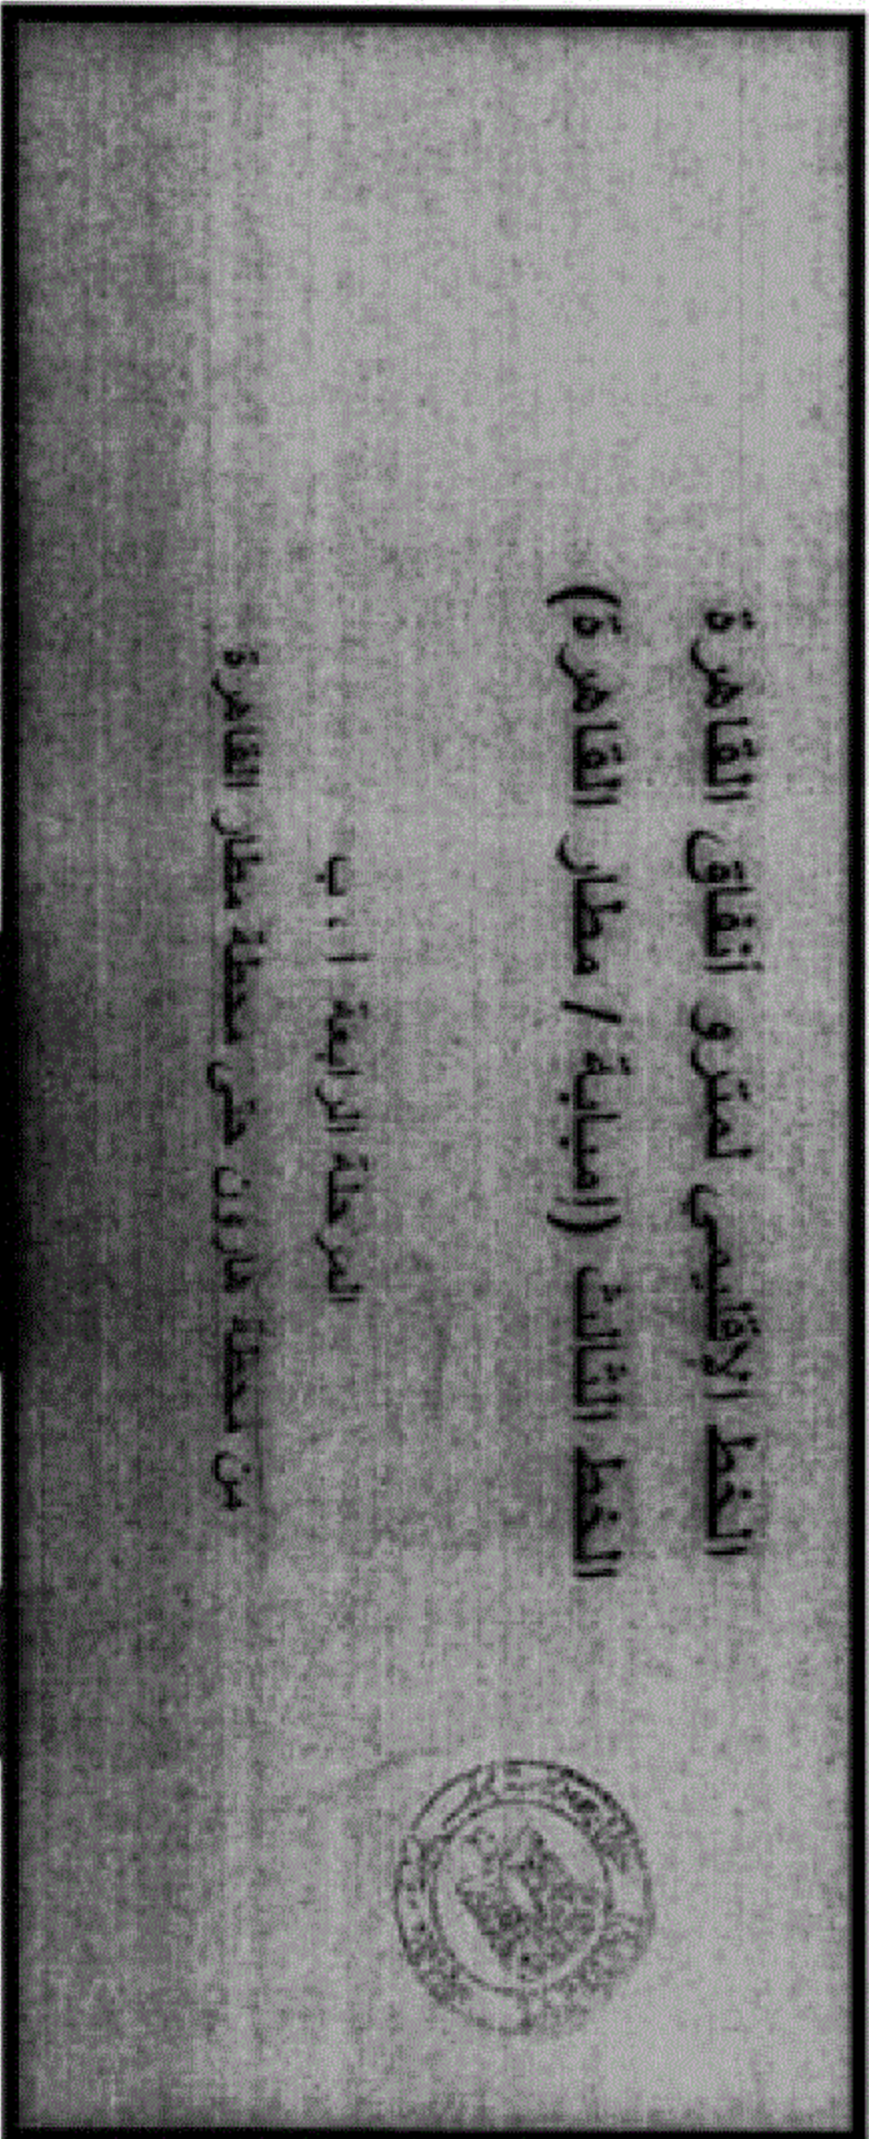 الخط الإقليمي لمترو أنفاق القاهرة
الخط الثالث (إمبابة / مطار القاهرة)
المرحلة الرابعة أ ، ب
من محطة هارون حتى محطة مطار القاهرة